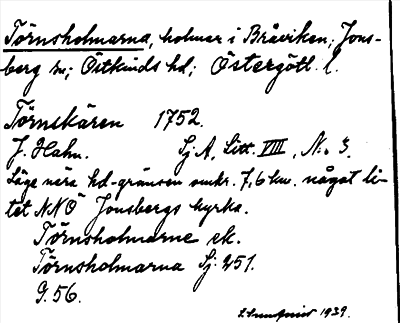 Törnsholmarna, holmar i Bråviken, Jons-
berg sn; Östkinds hd; Östergötl. l.
Törnskären 1752.
J. Hahn. Sj. A, Litt. VIII, N:o 3.
Läge nära hd-gränsen omkr. 7,6 km. något li-
tet NNÖ Jonsbergs kyrka.
Törnsholmarne ek.
Törnsholmarna Sj. 251.
G. 56.
1939.